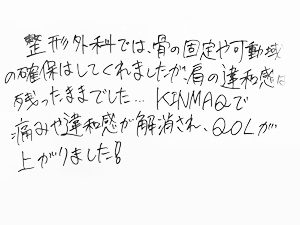 整形外科では、骨の固定や可動域
の確保はしてくれましたが、肩の違和感は
残ったままでした… KINMAQで
痛みや違和感が解消され、QOLが
上がりました!